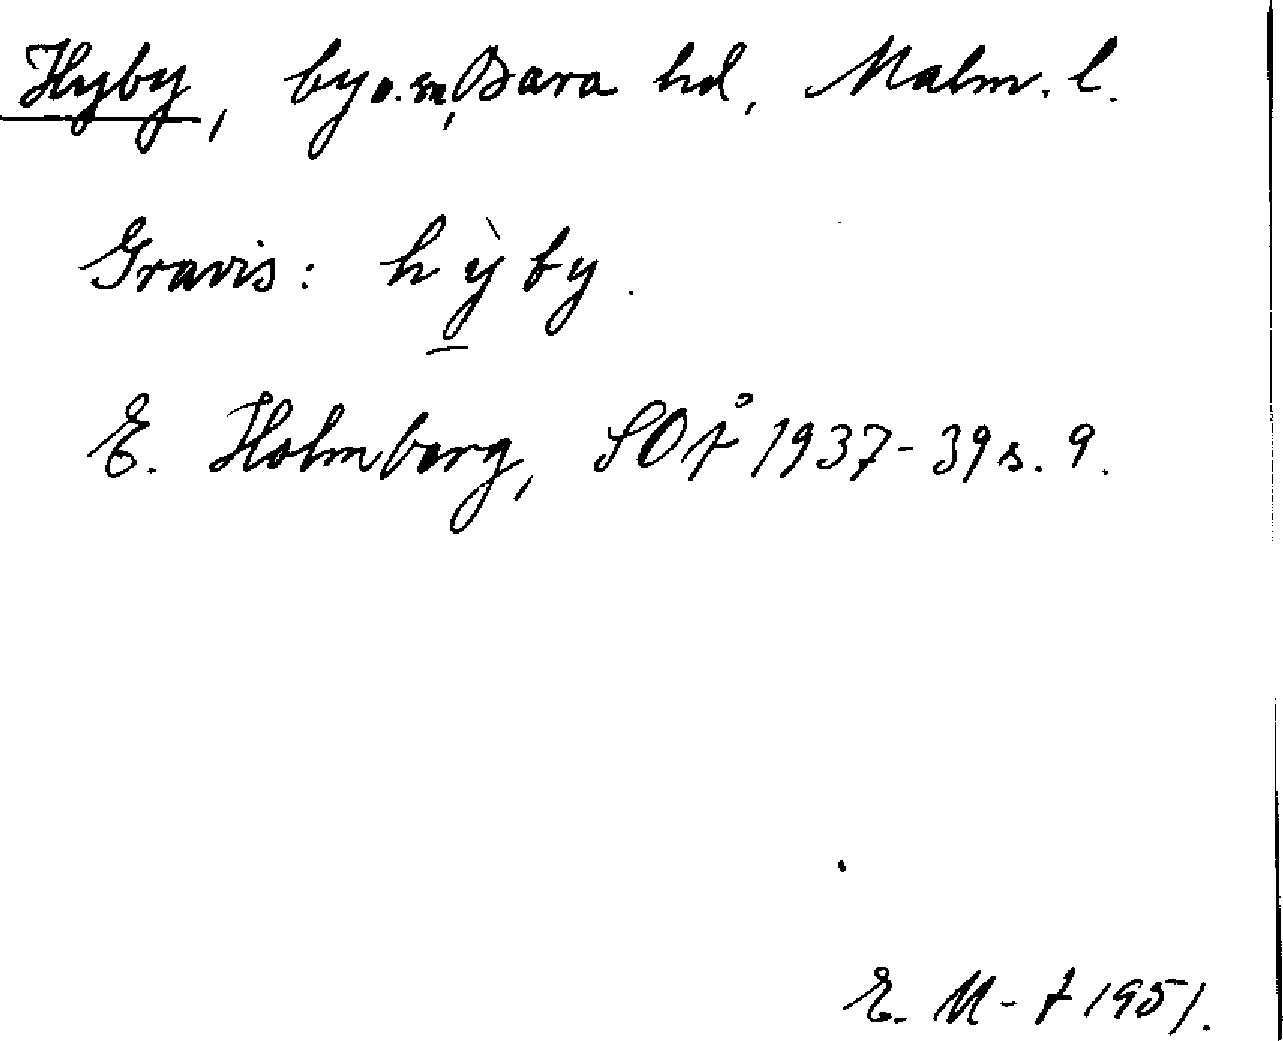 Hyby, by o. sn, Bara hd, Malm. l.
Gravis: hỳ̱by.
E. Holmberg, SOÅ 1937-39 s. 9.
E. M-t 1951.